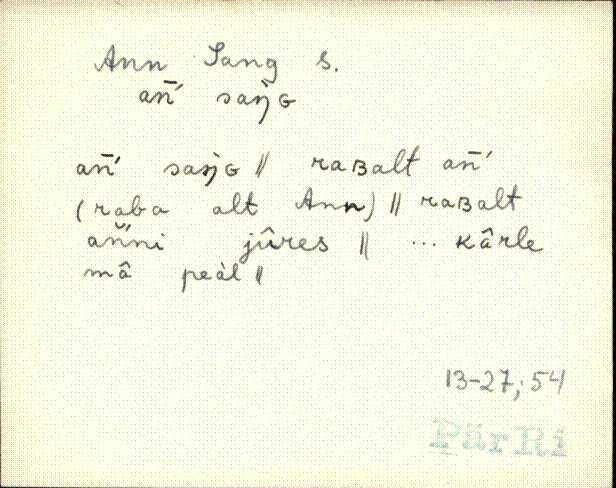 Ann Sang s.
an̄ʹ saŋ̀ɢ
an̄ʹ saŋ̀ɢ // raʙalt an̄ʹ
(raba alt Ann) // raʙalt
an̆ʹni jûres // ... kârle
mâ peàl //
13-27; 54
PärRi